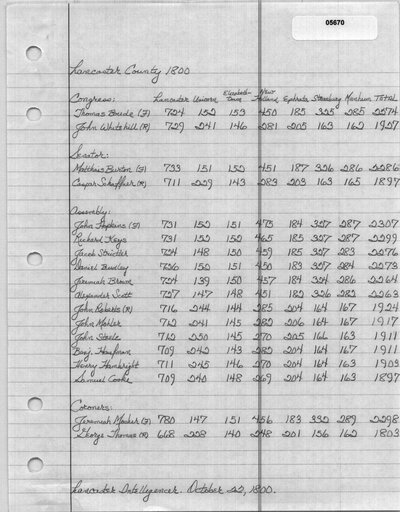 05670
Lancaster County 1800
Congress: Lancaster Unicorn Elizabeth-town New Holland Ephrata Strasburg Manheim Total
Thomas Boude (F) 724 152 153 450 185 325 285 2274
John Whitehill (R) 729 241 146 281 205 163 162 1927
Senator:
Matthias Barton (F) 733 151 152 451 187 326 286 2286
Caspar Shaffner (R) 711 229 143 283 203 163 165 1897
Assembly:
John Hopkins (F) 731 152 151 475 184 327 287 2307
Richard Keys 731 152 152 465 185 327 287 2299
Jacob Strickler 724 148 150 459 185 327 283 2276
Daniel Buckley 726 152 151 450 183 327 284 2273
Jeremiah Brown 724 139 150 457 184 324 286 2264
Alexander Scott 727 147 148 451 182 326 282 2263
John Roberts (R) 716 244 144 285 204 164 167 1924
John Mohler 712 241 145 282 206 164 167 1917
John Steele 712 250 145 270 205 166 163 1911
Benj. 709 242 143 282 204 164 167 1911
Henry Hambright 711 245 146 270 204 164 163 1903
Samuel 709 240 148 269 204 164 163 1897
Coroners:
Jeremiah Mosher (F) 780 147 151 456 183 332 289 2298
George Thomas (R) 668 228 140 248 201 156 162 1803
Lancaster Intelligencer. October 22, 1800.